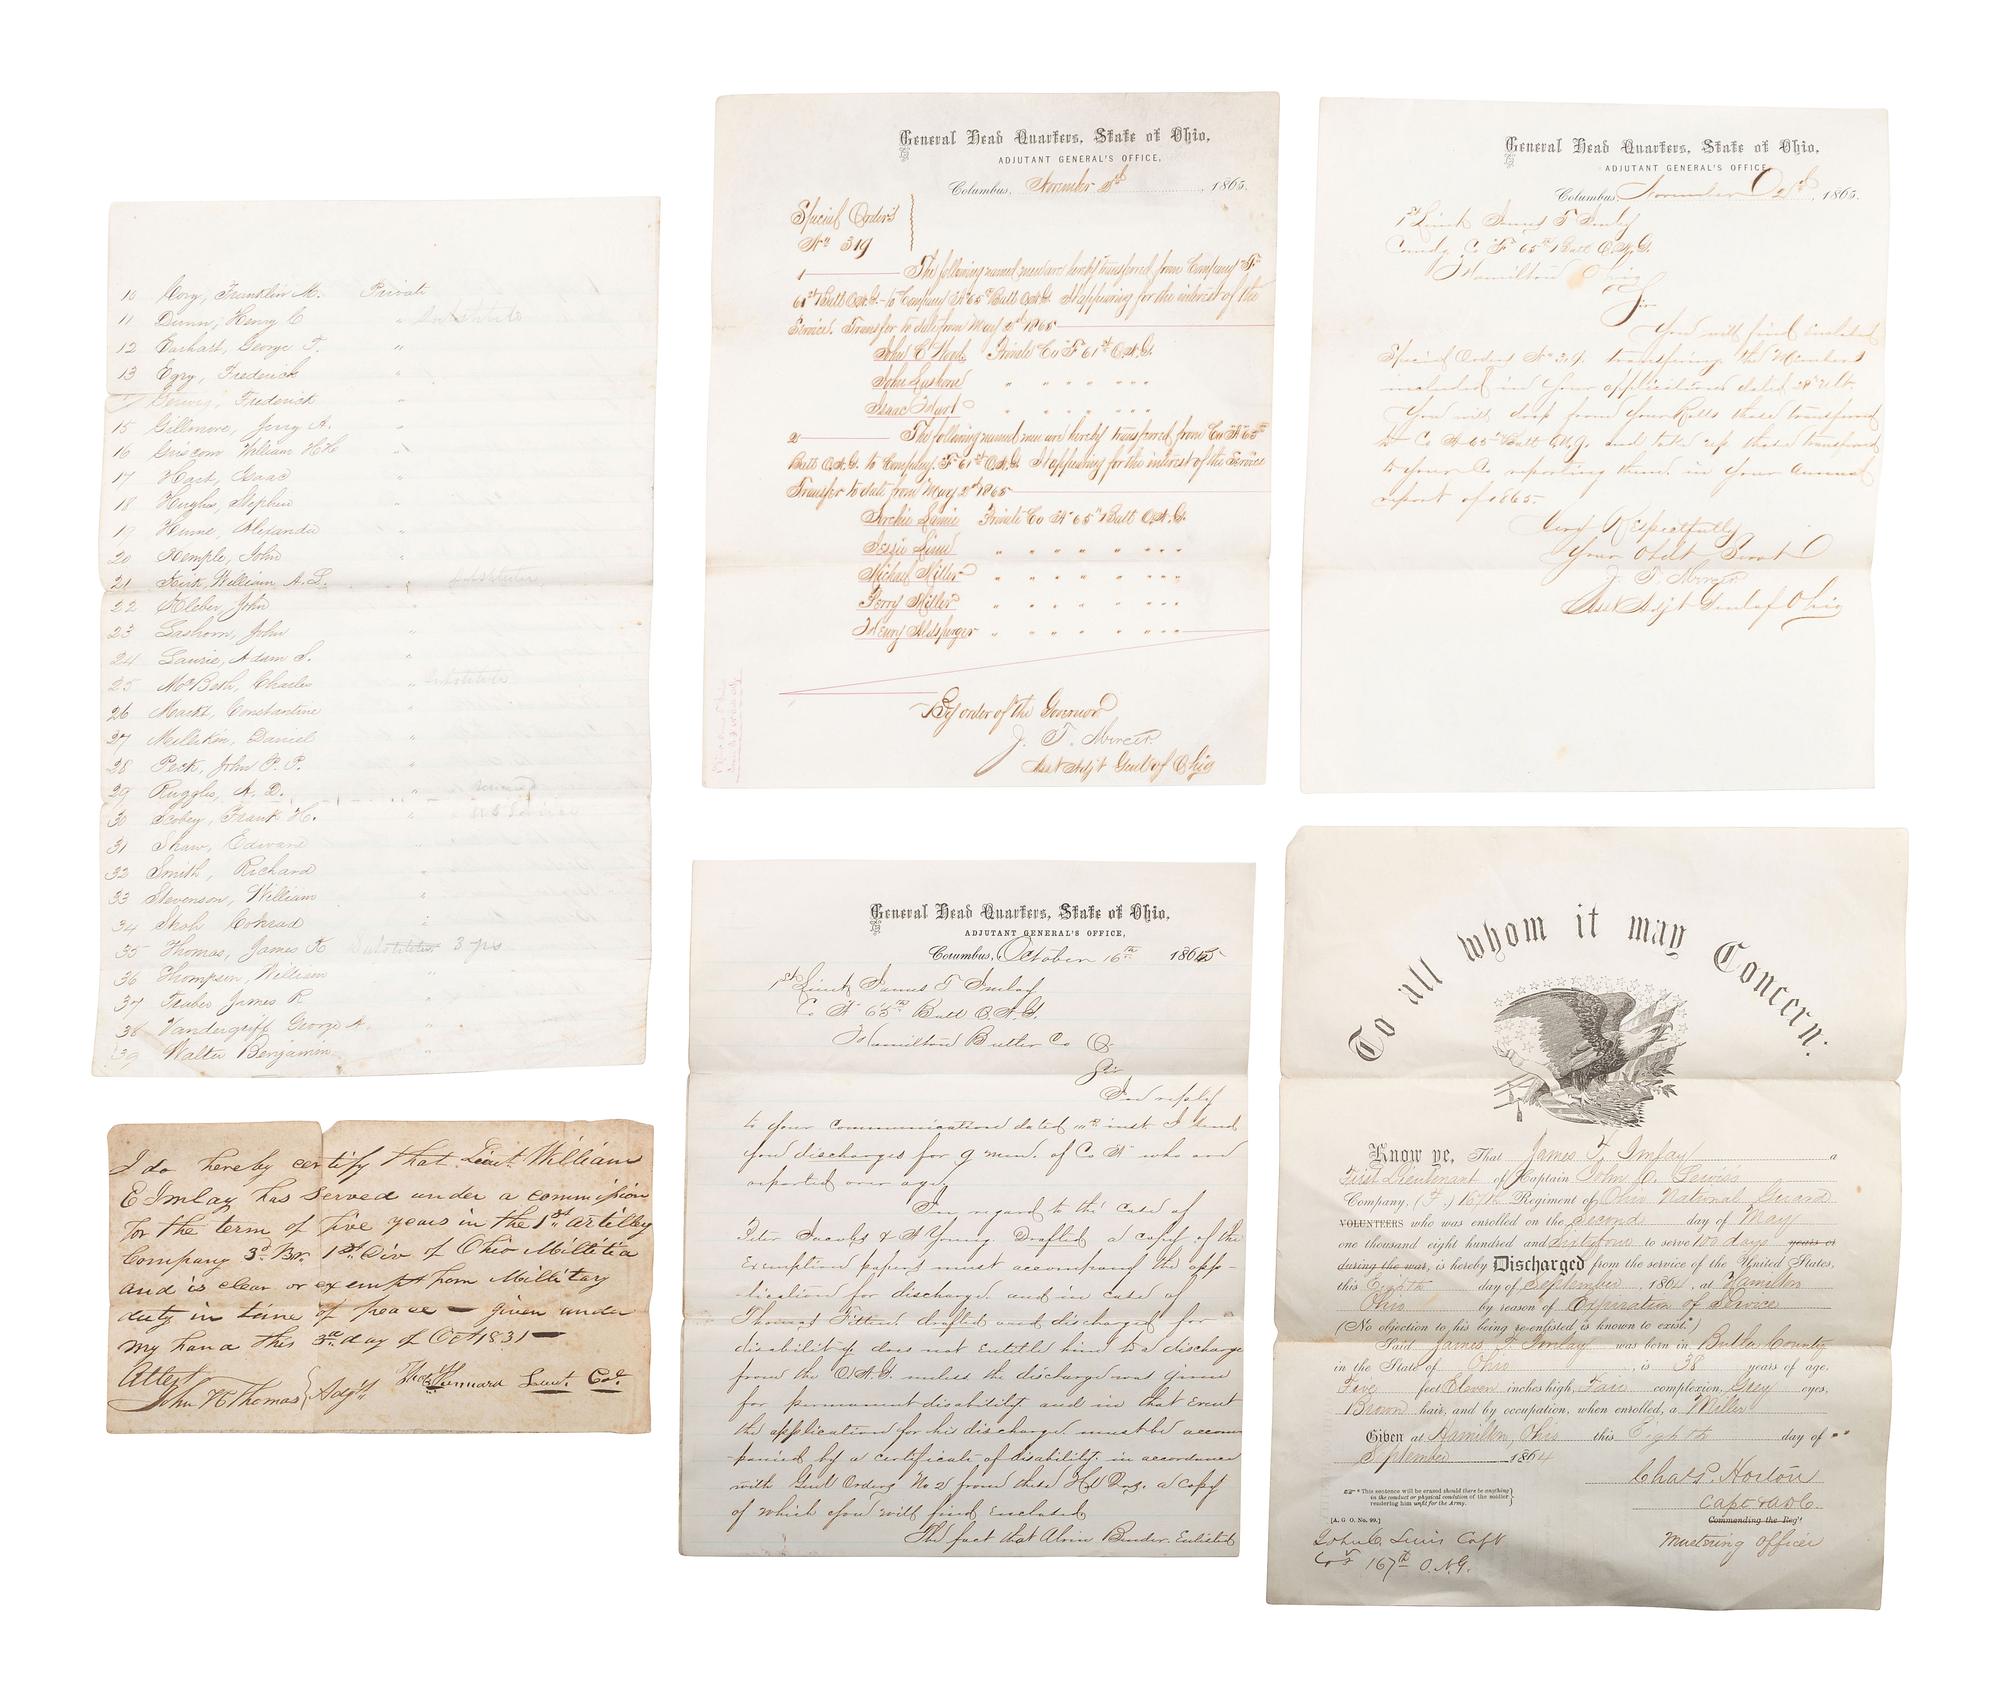 10 Cory, Franklin M. Private
11 Dunn, Henry C " Substitute
12 Earhart, George T. "
13 Egry, Frederick "
Frederick "
15 Gillmore, Jerry A. "
16 Griscom William HH "
17 Hart, Isaac "
18 Hughs, Stephen "
19 Hume, Alexander "
20 Kemple, John "
21 Kirk, William A. L. " Substitute
22 Kleber, John
23 Lashorn, John "
24 Laurie, Adam S. "
25 McBeth, Charles " Substitute
26 Markt, Constantine "
27 Millikin, Daniel "
28 Peck, John P. P. "
29 Ruggles, A. D. "
30 Scobey, Frank H. " U S Service
31 Shaw, Edward "
32 Smith, Richard
33 Stevenson, William "
34 Conrad "
35 Thomas, James K Substitute 3 yrs
36 Thompson, William "
37 Traber James R "
38 Vandergriff George A. "
39 Walter Benjamin "
General Head Quarters, State of Ohio,
ADJUTANT GENERAL'S OFFICE,
Columbus, November 2d, 1865.
Special Orders
No 319
1 The following named men are hereby transferred from Company "F"
61st Batt O.N.G. to Company "A" 65th Batt O.N.G. It appearing for the interest of the
Service. Transfer to date from May 2d 1865
John C Wood Private Co "F" 61st O.N.G.
John Laskore " " " " " "
Isaac Hart " " " " " "
2 The following named men are hereby transferred from Co "A" 65th
Batt O.N.G. to Company "F" 61st O.N.G. It appearing for the interest of the Service
Transfer to date from May 2d 1865
Archie Lamie Private Co "A" 65th Batt O.N.G.
" " " " " "
Michael Miller " " " " " "
Perry Miller " " " " " "
Henry " " " " " "
By order of the Governor
J. T. Mercer
Asst Adj't Genl of Ohio
General Head Quarters, State of Ohio,
ADJUTANT GENERAL'S OFFICE,
Columbus, November 2d, 1865.
1st Lieut James T Imlay
Comdg Co "F" 65th Batt O.N.G.
Hamilton Ohio
Sir
You will find enclosed
Special Orders No 319. transferring the Members
included in your applications dated 28th ult.
You will drop from your Rolls those transfered
to Co A 65th Batt O.N.G. and take up those transfered
to your Co reporting them in your Annual
report of 1865.
Very Respectfully
Your Obdt Servt
J. T. Mercer
Asst Adj't Genl of Ohio
I do hereby certify that Lieut. William
E Imlay has served under a commission
for the term of five years in the 1st Artillery
Company 3d Br. 1st Div of Ohio Millitia
and is clear or exempt from Millitary
duty in time of peace — given under
my hand this 3rd day of Oct 1831 —
Attest
John K Thomas } Adj't Thos Kennard Lieut. Col.
General Head Quarters, State of Ohio,
ADJUTANT GENERAL'S OFFICE,
Columbus, October 16th 1865
1st Lieut James T Imlay
Co "A" 65th Batt O.N.G.
Hamilton Butler Co O.
Sir
In reply
to your communication dated 11th inst. I send
you discharges for 9 men. of Co "A" who are
reported over age.
In regard to the case of
Peter Jacobs & A Young. Drafted a copy of the
Exemption papers must accompany the app-
lication for discharge. and in case of
Thomas Fitten. drafted and discharged for
disability. does not entitle him to a discharge
from the O.N.G. unless the discharge was given
for permanent disability. and in that event
the application for his discharge must be accom
panied by a certificate of disability. in accordance
with Genl Orders No 2 from these Hd Qrs. a copy
of which you will find enclosed.
The fact that Alvin Bender. Enlisted
To all whom it may Concern:
Know ye, That James T. Imlay a
First Lieutenant of Captain John C. Lewis's
Company, (F.) 167th Regiment of Ohio National Guard
VOLUNTEERS who was enrolled on the Second day of May
one thousand eight hundred and sixtyfour to serve 100 days years or
during the war, is hereby Discharged from the service of the United States,
this Eighth day of September, 1864, at Hamilton
Ohio by reason of Expiration of Service
(No objection to his being re-enlisted is known to exist.*)
Said James T. Imlay was born in Butler County
in the State of Ohio, is 38 years of age,
Five feet Eleven inches high, Fair complexion, Grey eyes,
Brown hair, and by occupation, when enrolled, a Miller
Given at Hamilton, Ohio this Eighth day of
September 1864
Chas P. Horton
Capt & ADC.
Commanding the Reg't
Mustering Officer
* This sentence will be erased should there be anything
in the conduct or physical condition of the soldier
rendering him unfit for the Army.
[A. G. O. No. 99.]
John C. Lewis Capt
Co F 167th O.N.G.